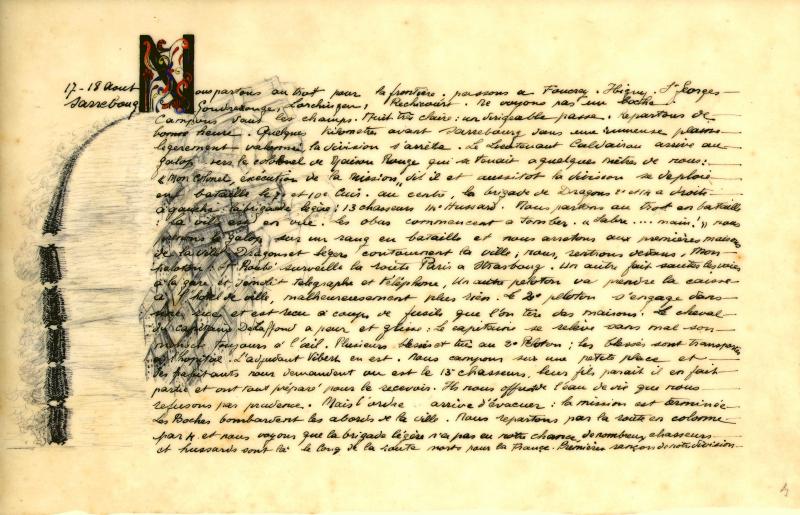 17-18 Aout
Sarrebourg
Nous partons au trot pour la frontière. passons a Foucrey. Ibigny. St Georges
Gondrexange, Lorchingen, Rechicourt. Ne voyons pas un Boche.
Campons dans les champs. Nuit très claire: un dirigeable passe. repartons de
bonne heure. Quelques kilometres avant Sarrebourg dans une immense plaine
légèrement valonnée la division s'arrête. Le Lieutenant arrive au
galop vers le colonel de Maison Rouge qui se tenait a quelques mètres de nous:
"Mon Colonel, exécution de la mission" dit il et aussitot la division se deploie
en bataille le 7e et 10e Cuir. au centre, la brigade de Dragons a droite
a gauche la brigade légère: 13 chasseurs Hussard. Nous partons au trot en bataille
la ville est en vue. les obus commencent a tomber. "Sabre.... main!" nous
prenons le galop sur un rang en bataille et nous arretons aux premières maisons
de la ville Dragons et légers contournent la ville; nous, rentrions dedans, Mon
peloton surveille la route Paris a Strasbourg. Un autre fait sauter les voies
a la gare et telegraphe et téléphone, Un autre peloton va prendre la caisse
a l'hotel de ville, malheureusement plus rien. Le 2e peloton s'engage dans
une rue et est recu a coups de fusils que l'on tire des maisons. Le cheval
du capitaine Delaffond a peur et glisse: le capitaine se relève sans mal son
toujours a l'œil. Plusieurs blessés et tué au Peloton; les blessés sont transportés
a l'hopital. L'adjudant Vibert en est. Nous campons sur une petite place et
des habitants nous demandent ou est le 13e chasseurs, leur fils parait il en fait
partie et ont tout préparé pour le recevoir. Ils nous offrent de l'eau de vie que nous
refusons par prudence. Mais l'ordre arrive d'évacuer: la mission est terminée
Les Boches bombardent les abords de la ville. Nous repartons par la route en colonne
par 4. et nous voyons que la brigade légère n'a pas eu notre chance, de nombreux chasseurs
et hussards sont là le long de la route morts pour la France. Premières rançons de notre division
4